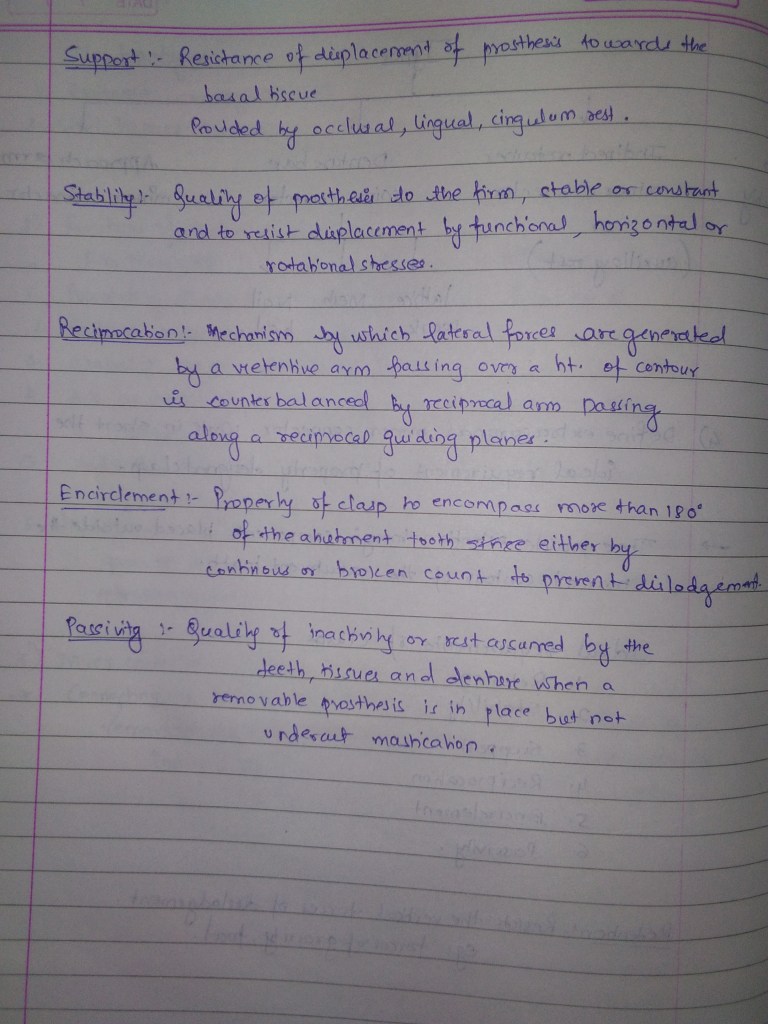 Support :- Resistance of displacement of prosthesis towards the
basal tissue
Provided by occlusal, lingual, cingulum rest.
Stability :- Quality of prosthesis to the firm, stable or constant
and to resist displacement by functional, horizontal or
rotational stresses.
Reciprocation :- Mechanism by which lateral forces are generated
by a retentive arm passing over a ht. of contour
is counterbalanced by reciprocal arm passing
along a reciprocal guiding planes.
Encirclement :- Property of clasp to encompass more than 180°
of the abutment tooth either by
continous or broken count to prevent dislodgement.
Passivity :- Quality of inactivity or rest assumed by the
teeth, tissues and denture when a
removable prosthesis is in place but not
undercut mastication.